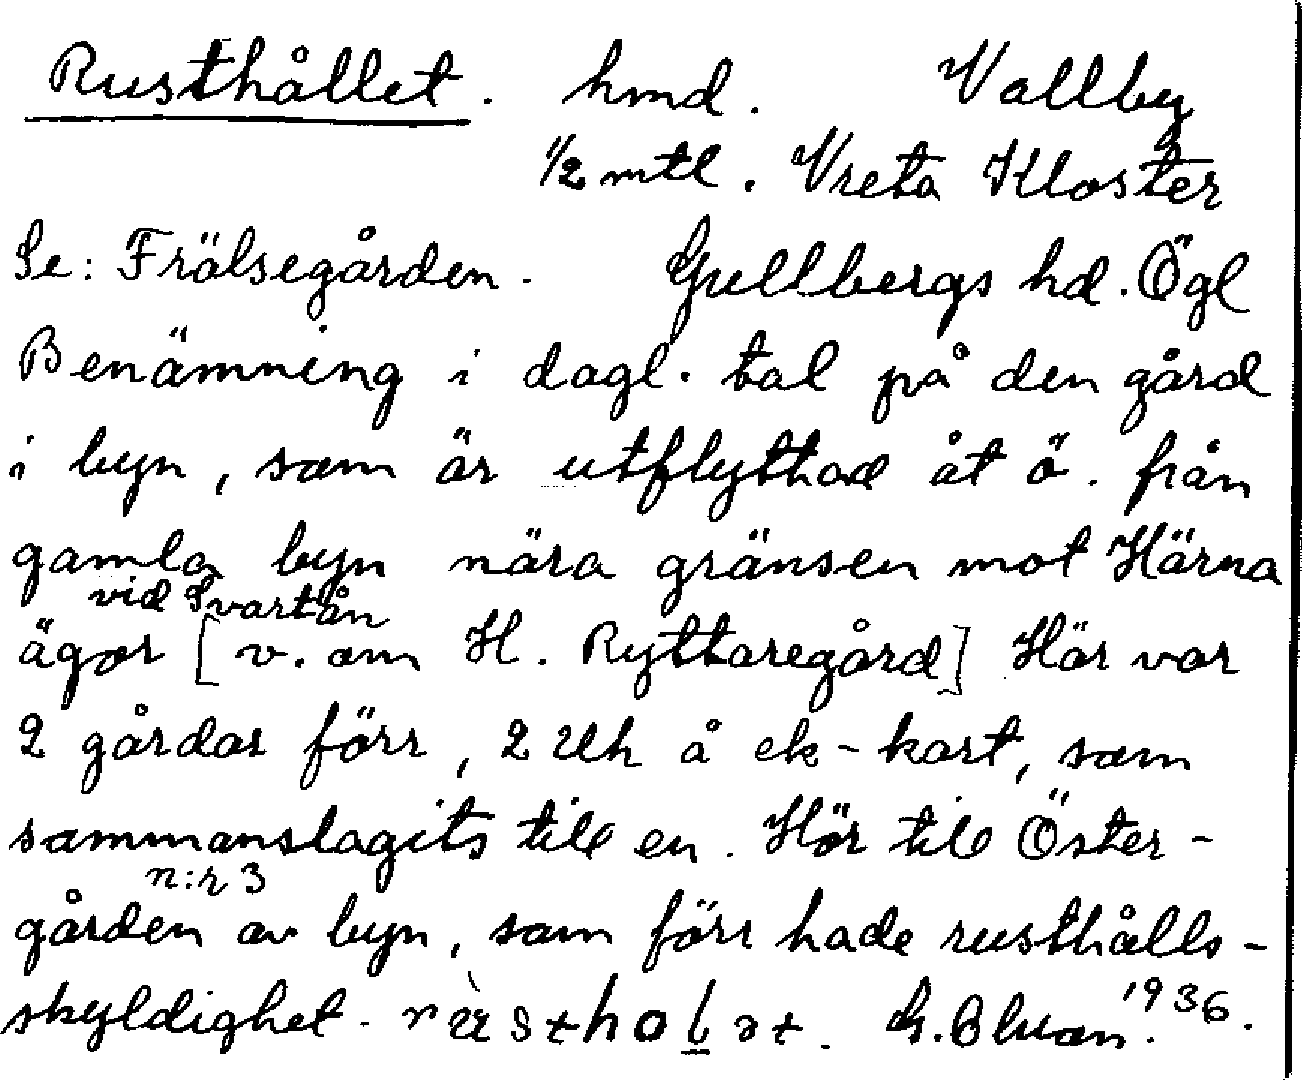 Rusthållet. hmd. Vallby
1/2 mtl. Vreta Kloster
Se: Frälsegården. Gullbergs hd. Ögl
Benämning i dagl. tal på den gård
i byn, som är utflyttad åt ö. från
gamla byn nära gränsen mot Härna
vid Svartån
ägor [v. om H. Ryttaregård] Här var
2 gårdar förr, 2 Uh å ek-kart, som
sammanslagits till en. Hör till Öster-
n:r 3
gården av byn, som förr hade rusthålls-
skyldighet. 1936.